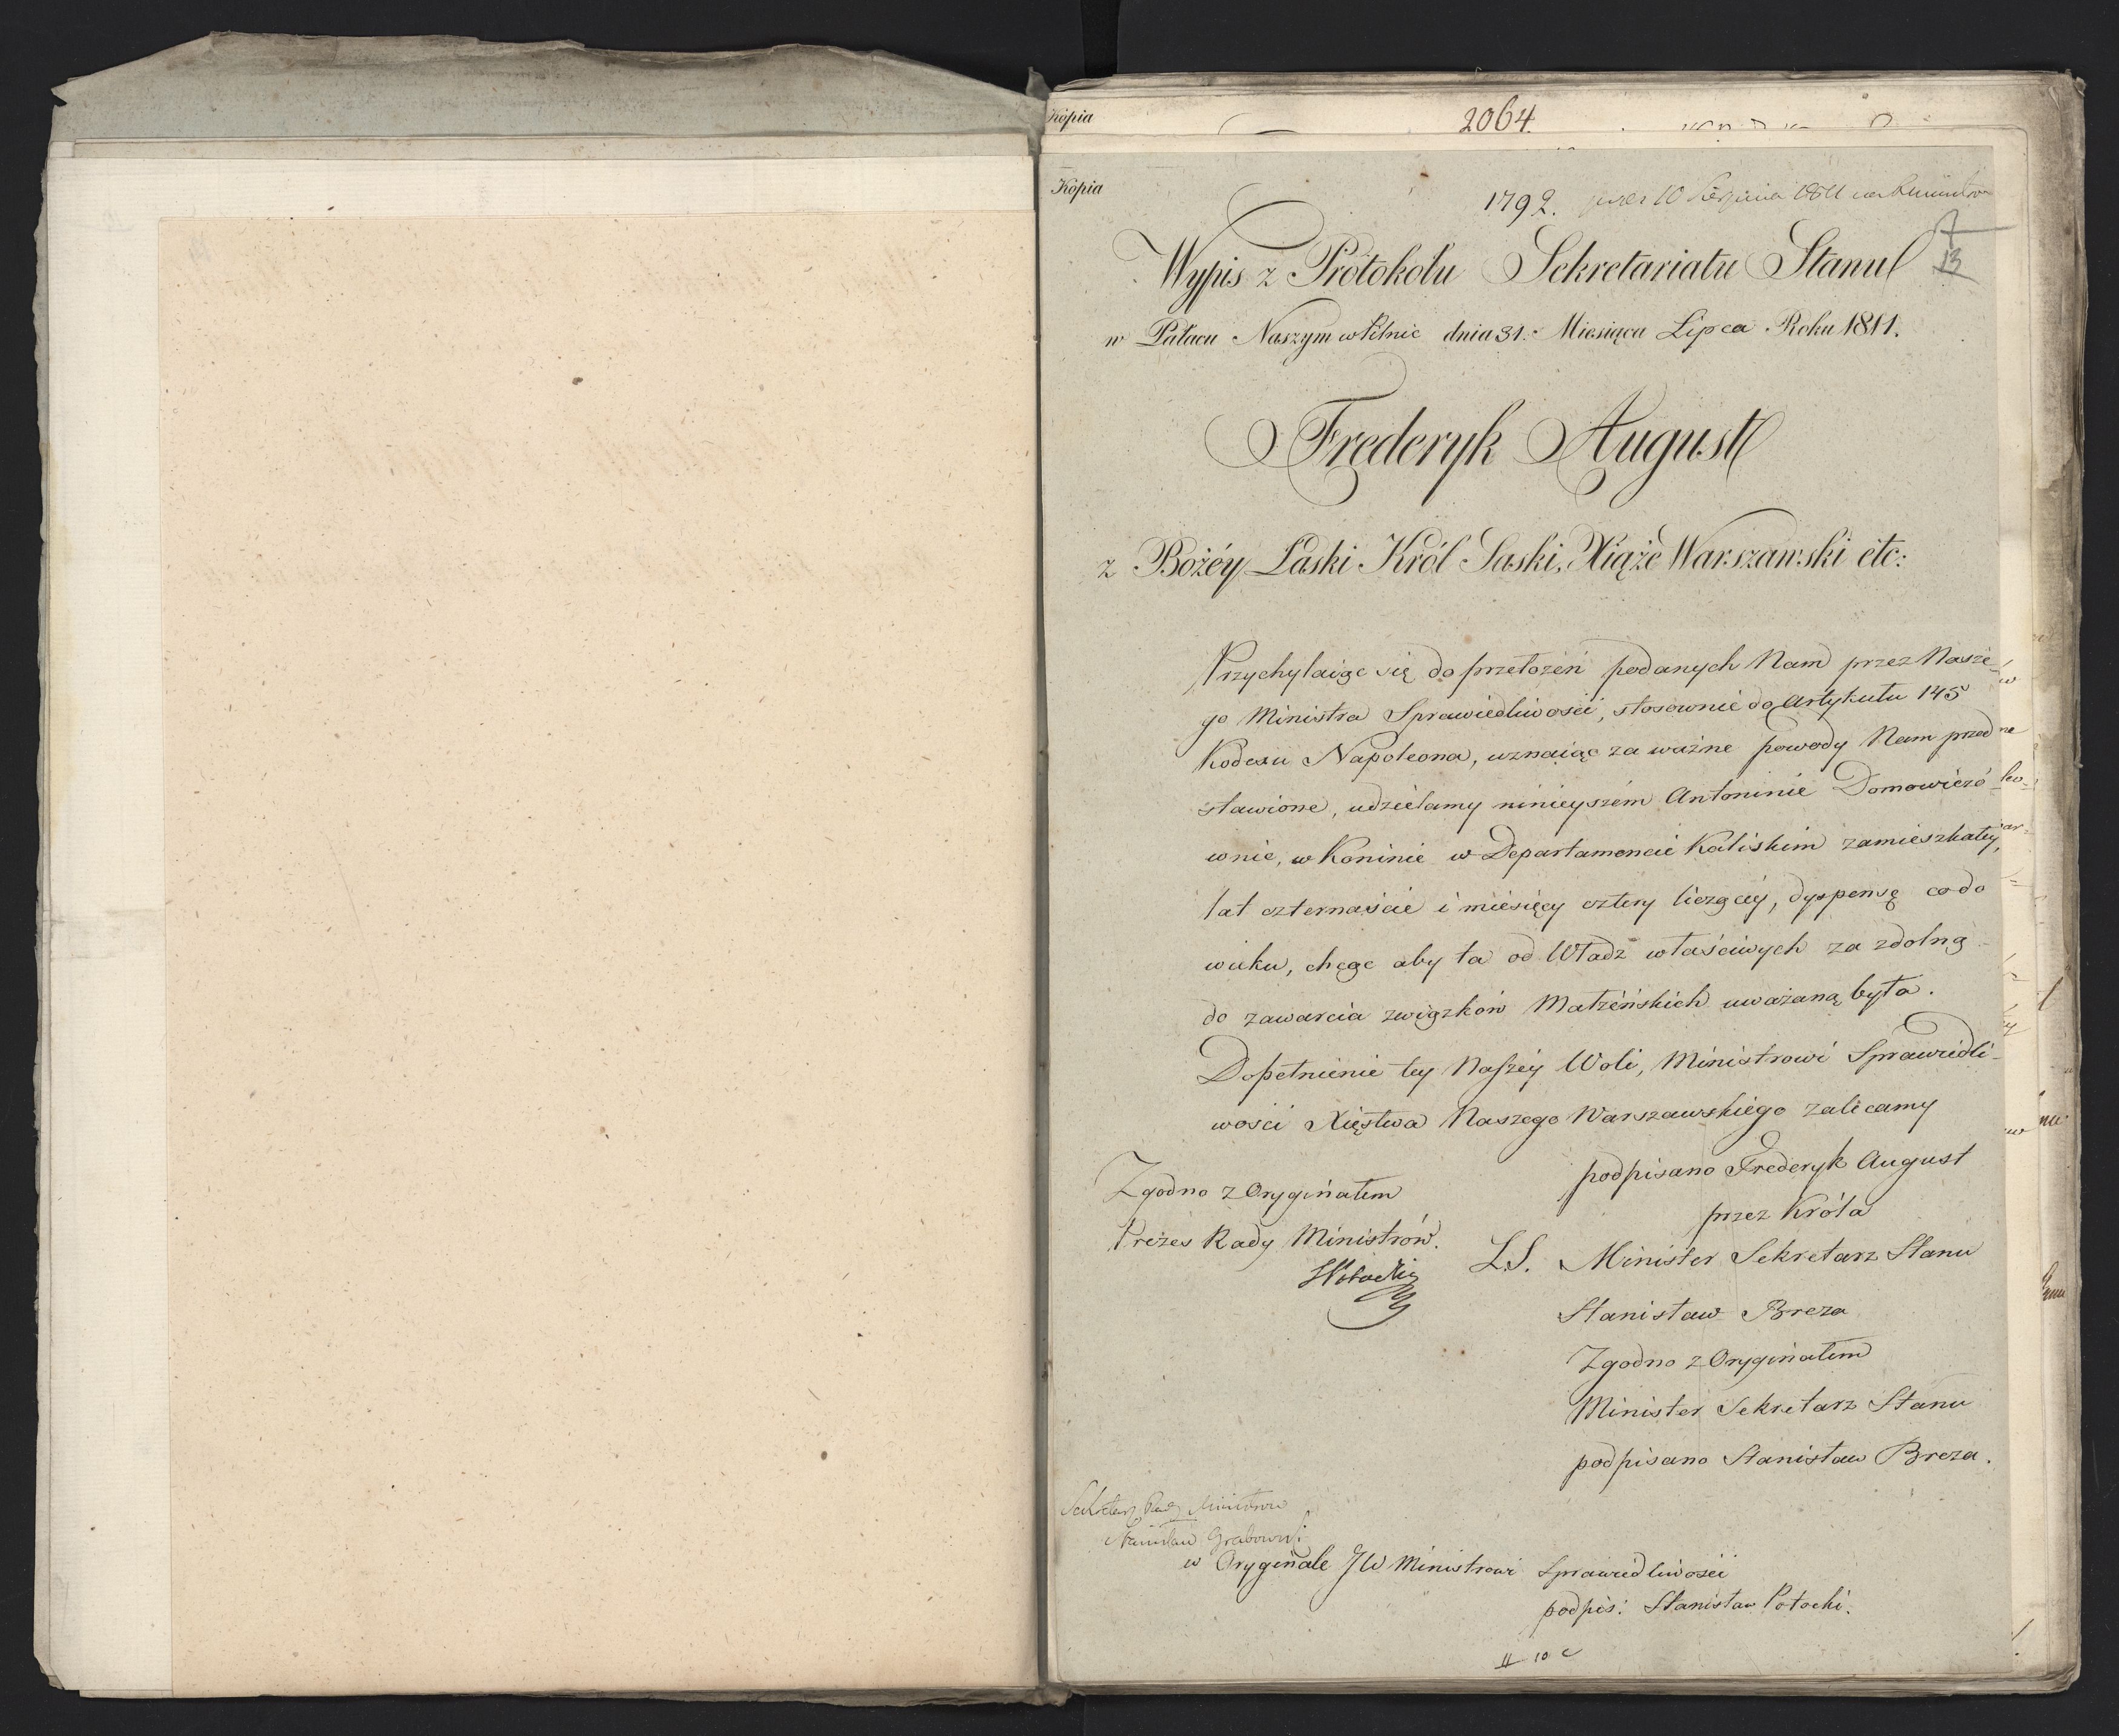 Kopia
2064.
Kopia
1792. 10 Sierpnia 1811
Wypis z Protokołu Sekretariatu Stanu
13
w Pałacu Naszym w Pilnic dnia 31. Miesiąca Lipca Roku 1811.
Frederyk August
z Bożéy Łaski Król Saski, Xiąże Warszawski etc:
Przychylaiąc się do przełożeń podanych Nam przez Nasze-
go Ministra Sprawiedliwości, stosownie do Artykułu 145
Kodexu Napoleona, uznaiąc za ważne powody Nam przed
stawione, udzielamy ninieyszém Antoninie Domowiczó-
wnie, w Koninie w Departamencie Kaliskim zamieszkałey,
lat czternaście i miesięcy cztery liczącéy, dyspensę co do
wieku, chcąc aby ta od Władz właściwych za zdolną
do zawarcia związków Małżeńskich uważaną była.
Dopełnienie tey Naszéy Woli, Ministrowi Sprawiedli-
wości Xięstwa Naszego Warszawskiego zalecamy
podpisano Frederyk August
przez Króla
L.S. Minister Sekretarz Stanu
Stanisław Breza
Zgodno z Oryginałem
Minister Sekretarz Stanu
podpisano Stanisław Breza.
Zgodno z Oryginałem
Prezes Rady Ministrów.
SPotocki
Sekretarz Rady Ministrow
Stanisław Grabowski
w Oryginale JW Ministrowi Sprawiedliwości
podpis: Stanisław Potocki.